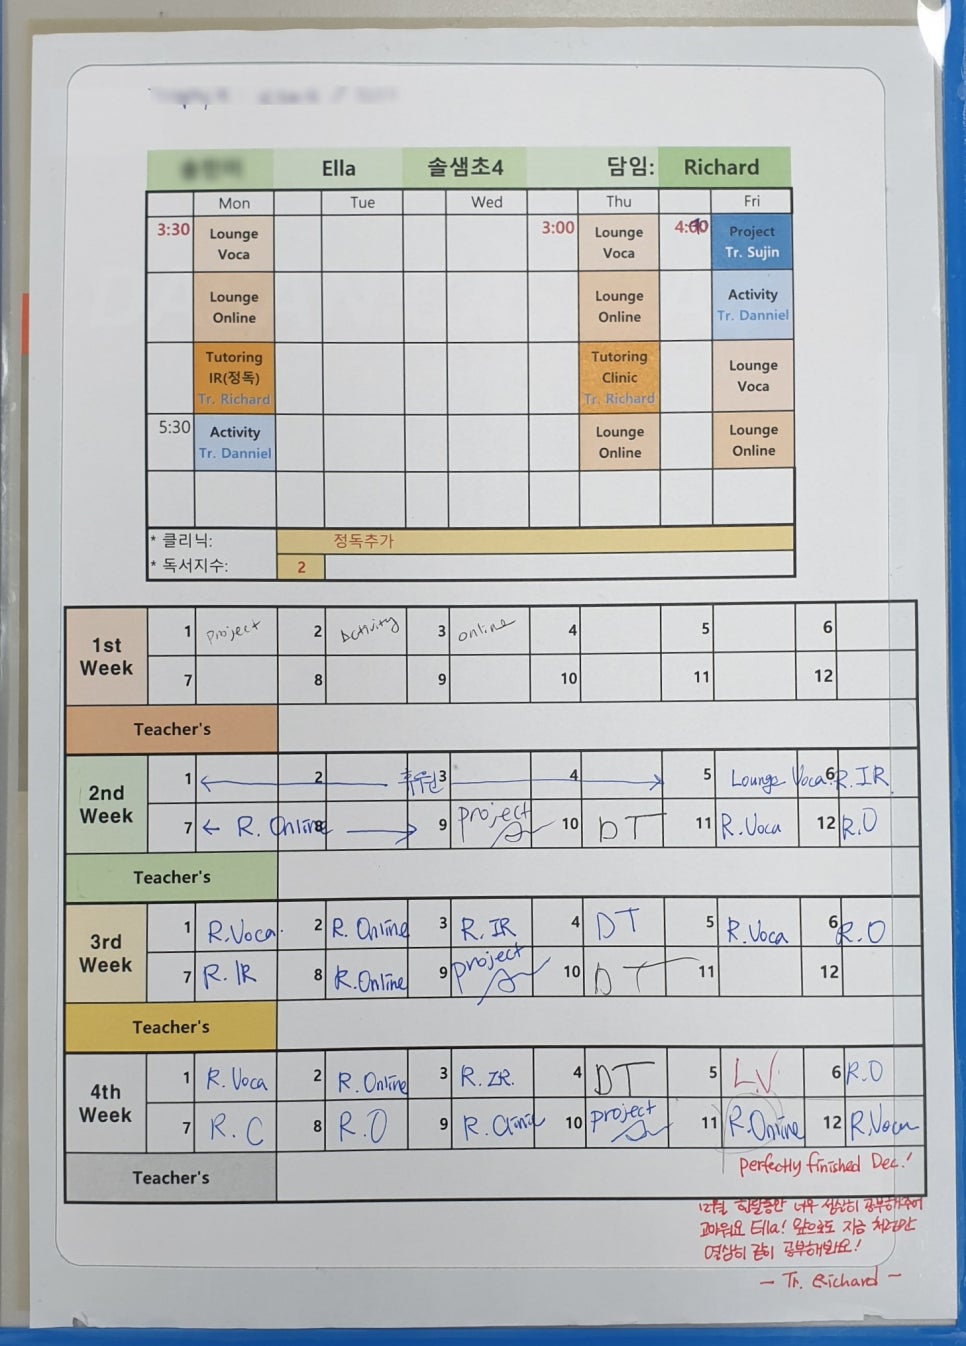 Ella 솔샘초4 담임: Richard
Mon Tue Wed Thu Fri
3:30 Lounge Voca 3:00 Lounge Voca Project Tr. Sujin
Lounge Online Lounge Online Activity Tr. Danniel
Tutoring IR(정독) Tr. Richard Tutoring Clinic Tr. Richard Lounge Voca
5:30 Activity Tr. Danniel Lounge Online Lounge Online
* 클리닉: 정독추가
* 독서지수: 2
1st Week 1 project 2 Activity 3 online 4 5 6
7 8 9 10 11 12
Teacher's
2nd Week 1 2 3 4 5 Lounge Voca 6 R.IR
7 R. Online 8 9 project 10 DT 11 R.Voca 12 R.O
Teacher's
3rd Week 1 R.Voca. 2 R. Online 3 R.IR 4 DT 5 R.Voca 6 R.O
7 R.IR 8 R.Online 9 project 10 DT 11 12
Teacher's
4th Week 1 R.Voca 2 R.Online 3 R.IR. 4 DT 5 L.V 6 R.O
7 R.C 8 R.O 9 10 project 11 R.Online 12 R.Voca
perfectly finished Dec.!
Teacher's
12월 한달동안 너무 열심히 공부해주어
고마워요 Ella! 앞으로도 지금 처럼만
열심히 같이 공부해봐요!
- Tr. Richard -